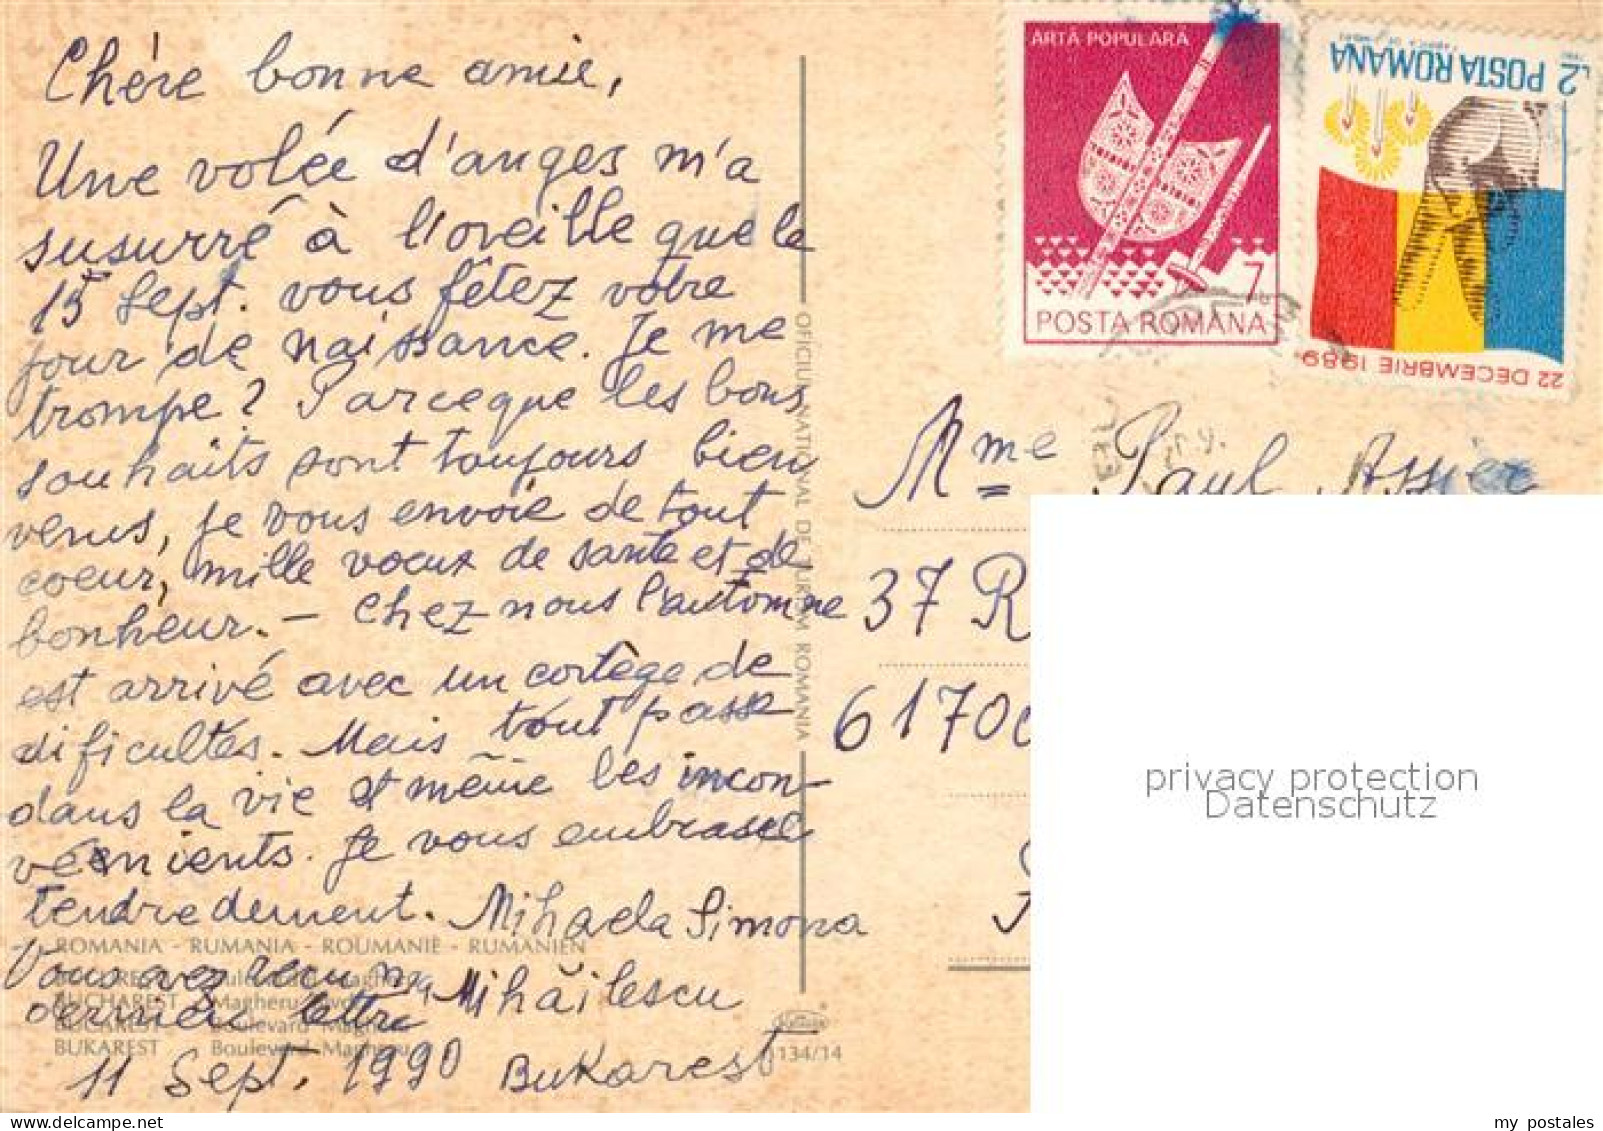 Chère bonne amie,
Une volée d'anges m'a
susurré à l'oreille que le
15 Sept. vous fêtez votre
jour de naissance. Je me
trompe? Parceque les bons
souhaits sont toujours bien
venus, je vous envoie de tout
coeur, mille voeux de santé et de
bonheur. – Chez nous l'automne
est arrivé avec un cortège de
dificultés. Mais tout passe
dans la vie et même les incon-
vénients. Je vous embrasse
tendredement. Mihaela Simona
Vous avez reçu ma Mihăilescu
dernière lettre
11 Sept. 1990 Bukarest
ROMANIA - RUMANIA - ROUMANIE - RUMANIEN
BUCHAREST Magheru
BUCAREST Boulevard Magheru
BUKAREST Boulevard Magheru
134/14
OFICIUL NATIONAL DE TURISM ROMANIA
ARTĂ POPULARĂ
7
POSTA ROMANA
2 POSTA ROMANA
22 DECEMBRIE 1989
Mme Paul Assier
37 R
6170
privacy protection
Datenschutz
my postales